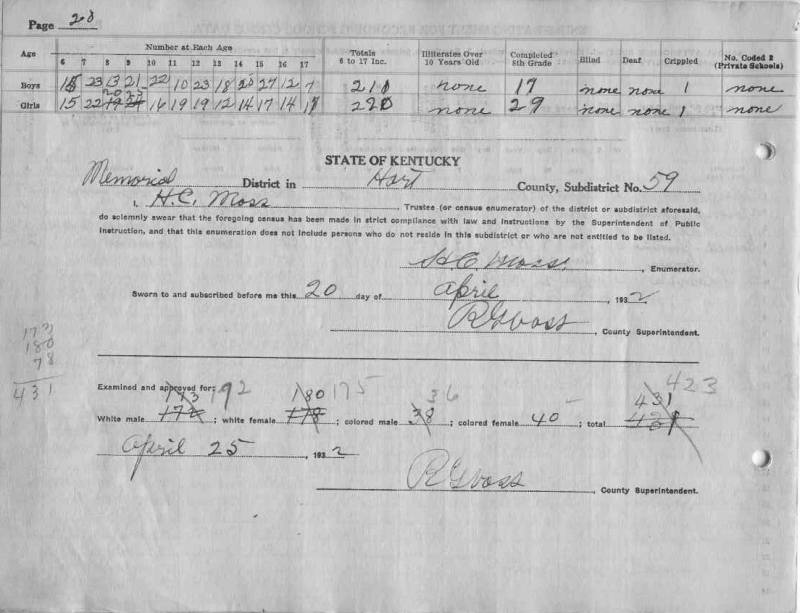 Page 28
Age Number at Each Age Totals 6 to 17 Inc. Illiterates Over 10 Years Old Completed 8th Grade Blind Deaf Crippled No. Coded 2 (Private Schools)
6 7 8 9 10 11 12 13 14 15 16 17
Boys 15 23 13 21 22 10 23 18 20 27 12 7 211 none 19 none none 1 none
20 23
Girls 15 22 19 24 16 19 19 12 14 17 14 220 none 29 none none 1 none
STATE OF KENTUCKY
Memorial District in Hart County, Subdistrict No. 59
I, H.C. Moss, Trustee (or census enumerator) of the district or subdistrict aforesaid,
do solemnly swear that the foregoing census has been made in strict compliance with law and instructions by the Superintendent of Public
Instruction, and that this enumeration does not include persons who do not reside in this subdistrict or who are not entitled to be listed.
H C Moss, Enumerator.
Sworn to and subscribed before me this 20 day of April, 1932
R G Voss, County Superintendent.
173
180
78
431
Examined and approved for:
173 192 180 175 36 431 423
White male 172; white female 178; colored male 38; colored female 40; total
April 25, 1932
R G Voss, County Superintendent.